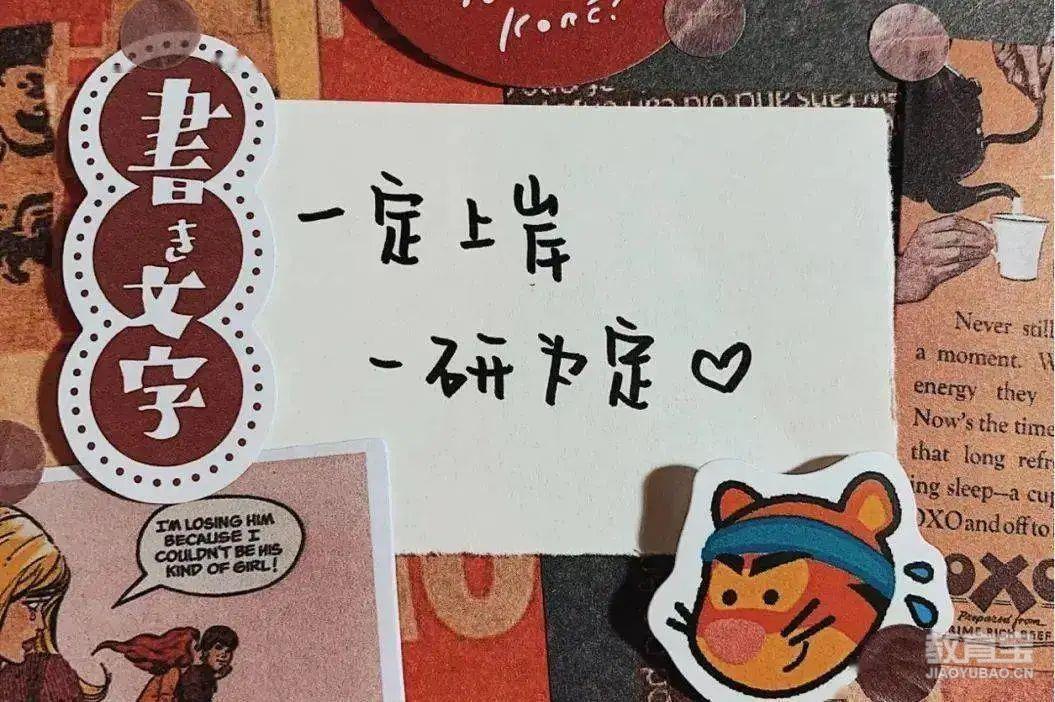 書き文字
一定上岸
一研为定♡
I'M LOSING HIM
BECAUSE I
COULDN'T BE HIS
KIND OF GIRL!
Never still
a moment.
energy they
Now's the time
that long
ing sleep—a
OXO and off to
OXO
Prepared from
教育宝
JIAOYUBAO.CN